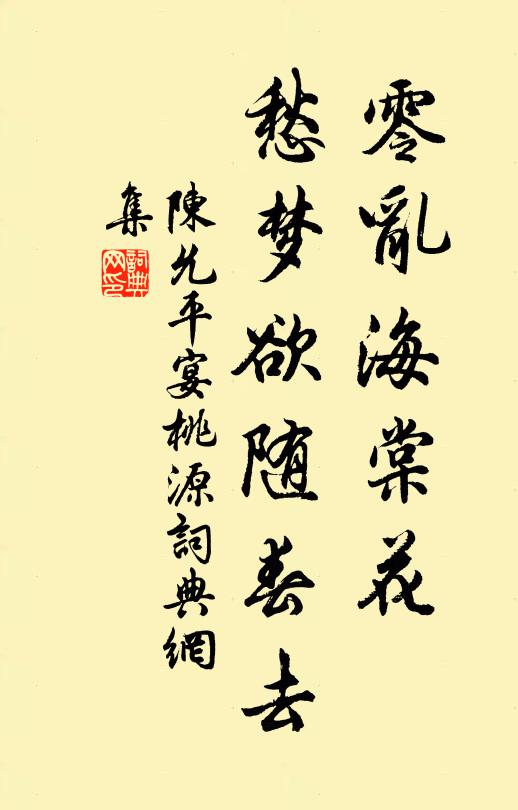 零亂海棠花
愁梦欲随春去
陳允平宴桃源詞典網
集
詞典
网印